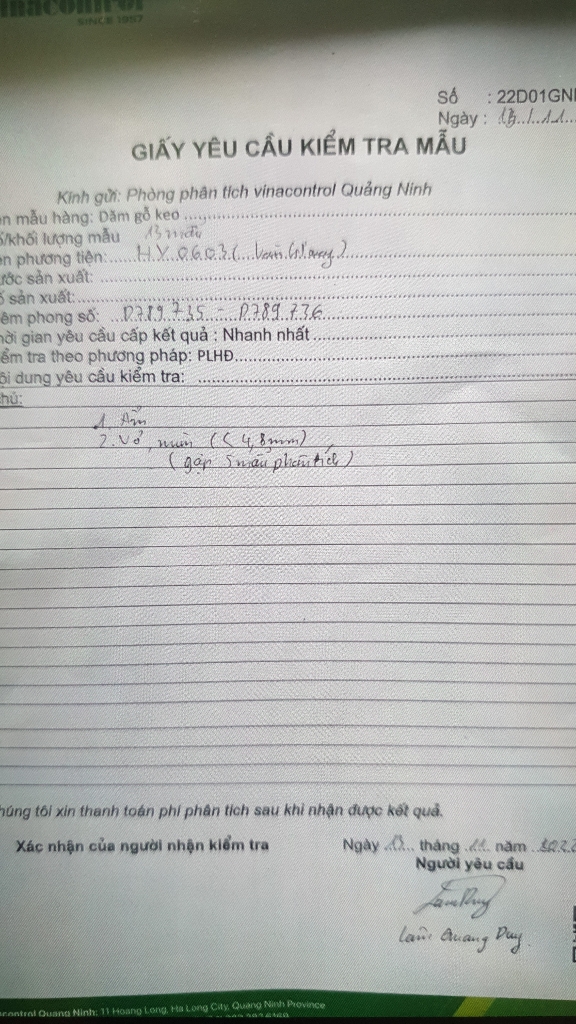 SINCE 1957
Số : 22D01GN
Ngày : 13/11
GIẤY YÊU CẦU KIỂM TRA MẪU
Kính gửi: Phòng phân tích vinacontrol Quảng Ninh
n mẫu hàng: Dăm gỗ keo
/khối lượng mẫu
n phương tiện: HY 0603
ước sản xuất:
sản xuất:
êm phong số: D789735 - D789736
ời gian yêu cầu cấp kết quả : Nhanh nhất
ểm tra theo phương pháp: PLHĐ
ội dung yêu cầu kiểm tra:
hú:
1. Ẩm
2. Vỏ, mùn (< 4,8mm)
(gộp 5 mẫu phân tích)
húng tôi xin thanh toán phí phân tích sau khi nhận được kết quả.
Xác nhận của người nhận kiểm tra
Ngày 13 tháng 11 năm 2022
Người yêu cầu
Lâm Quang Duy
control Quang Ninh: 11 Hoang Long, Ha Long City, Quang Ninh Province